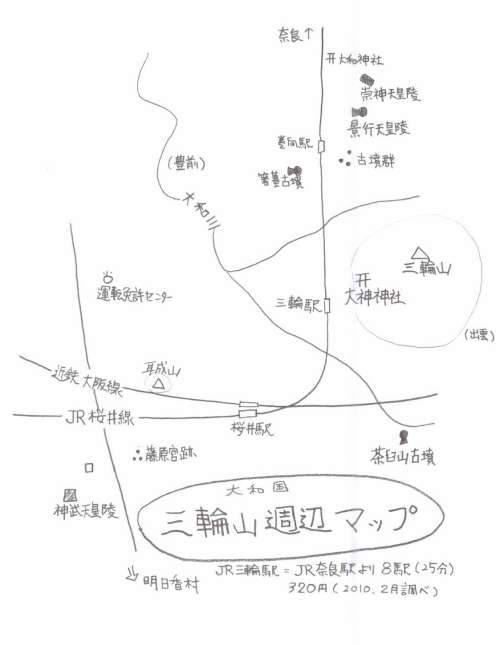 奈良↑
大和神社
崇神天皇陵
景行天皇陵
巻向駅
古墳群
箸墓古墳
(豊前)
大和川
三輪山
大神神社
運転免許センター
三輪駅
(出雲)
耳成山
近鉄大阪線
JR桜井線
桜井駅
茶臼山古墳
藤原宮跡
神武天皇陵
大和国
三輪山週辺マップ
明日香村
JR三輪馬駅=JR奈良駅より8駅(25分)
320円(2010.2月調べ)